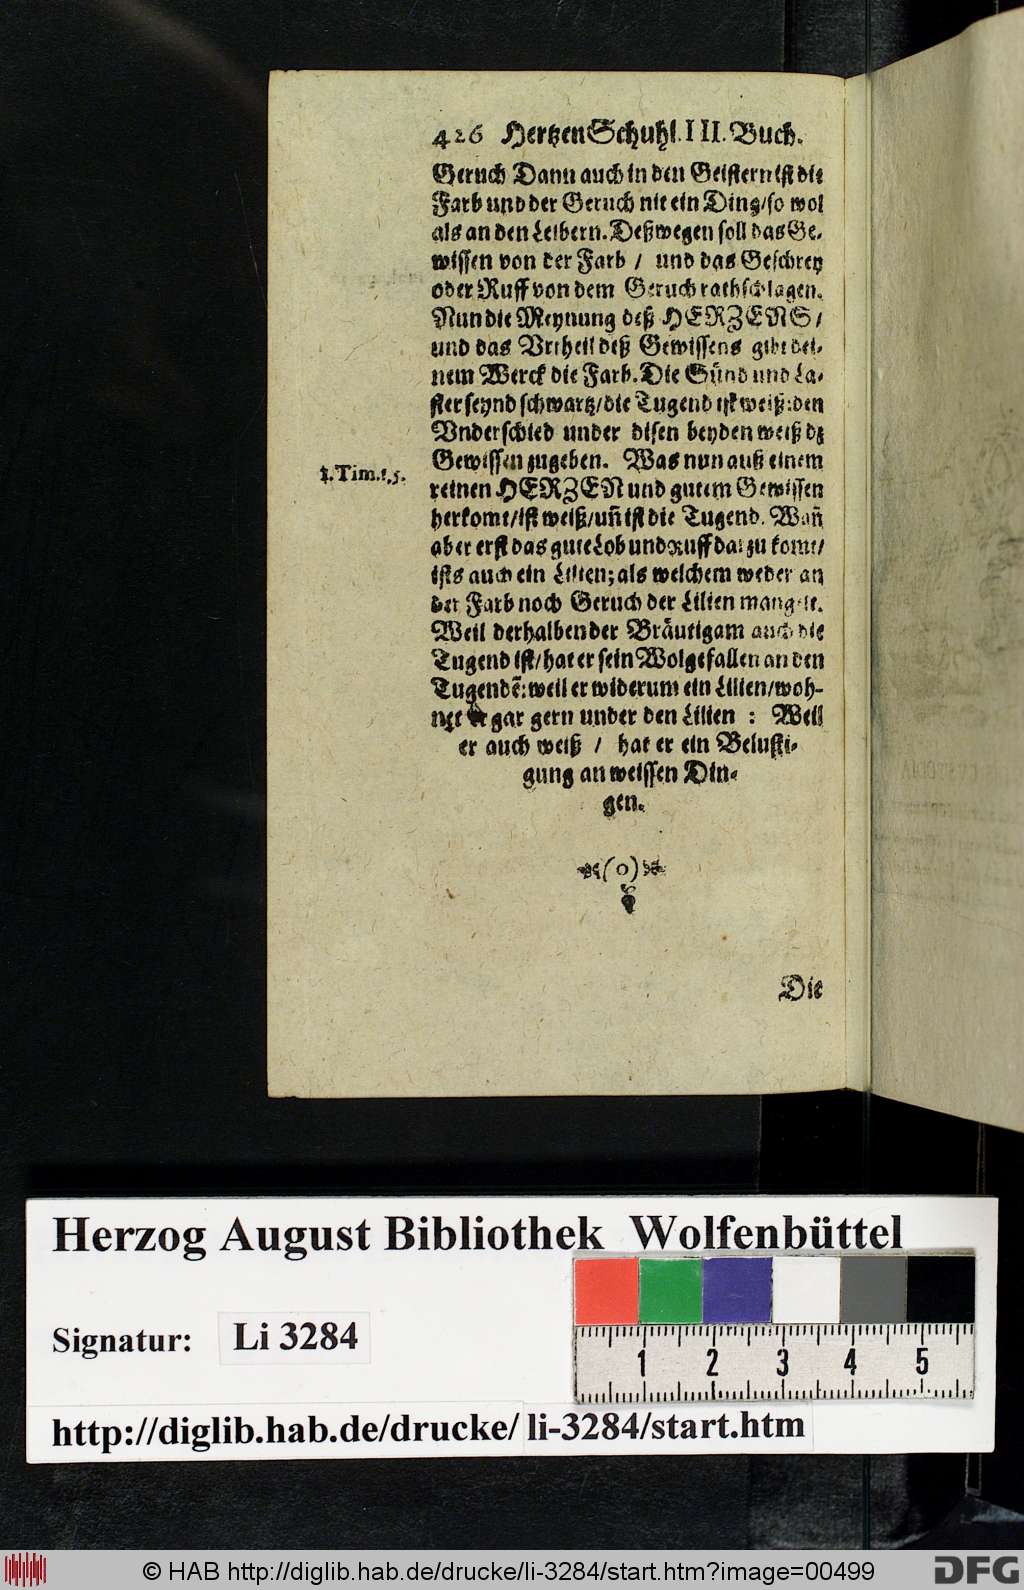 426 Hertzen Schuhl. III. Buch.
Geruch Dann auch in den Geistern ist die
Farb und der Geruch nit ein Ding/so wol
als an den Leibern. Deßwegen soll das Ge-
wissen von der Farb / und das Geschrey
oder Ruff von dem Geruch rathschlagen.
Nun die Meynung deß HERZENS /
und das Vrtheil deß Gewissens gibt dei-
nem Werck die Farb. Die Sünd und La-
ster seynd schwartz/die Tugend ist weiß: den
Vnderschied under disen beyden weiß dz
Gewissen zugeben. Was nun auß einem
1. Tim. 1, 5.
reinen HERZEN und gutem Gewissen
herkomt/ist weiß/uñ ist die Tugend. Wañ
aber erst das gute Lob und Ruff darzu komt/
ists auch ein Lilien; als welchem weder an
der Farb noch Geruch der Lilien mangelt.
Weil derhalben der Bräutigam auch die
Tugend ist/hat er sein Wolgefallen an den
Tugendẽ: weil er widerum ein Lilien/woh-
net er gar gern under den Lilien : Weil
er auch weiß / hat er ein Belusti-
gung an weissen Din-
gen.
(o)
Die
Herzog August Bibliothek Wolfenbüttel
Signatur: Li 3284
1 2 3 4 5
http://diglib.hab.de/drucke/ li-3284/start.htm
© HAB http://diglib.hab.de/drucke/li-3284/start.htm?image=00499
DFG